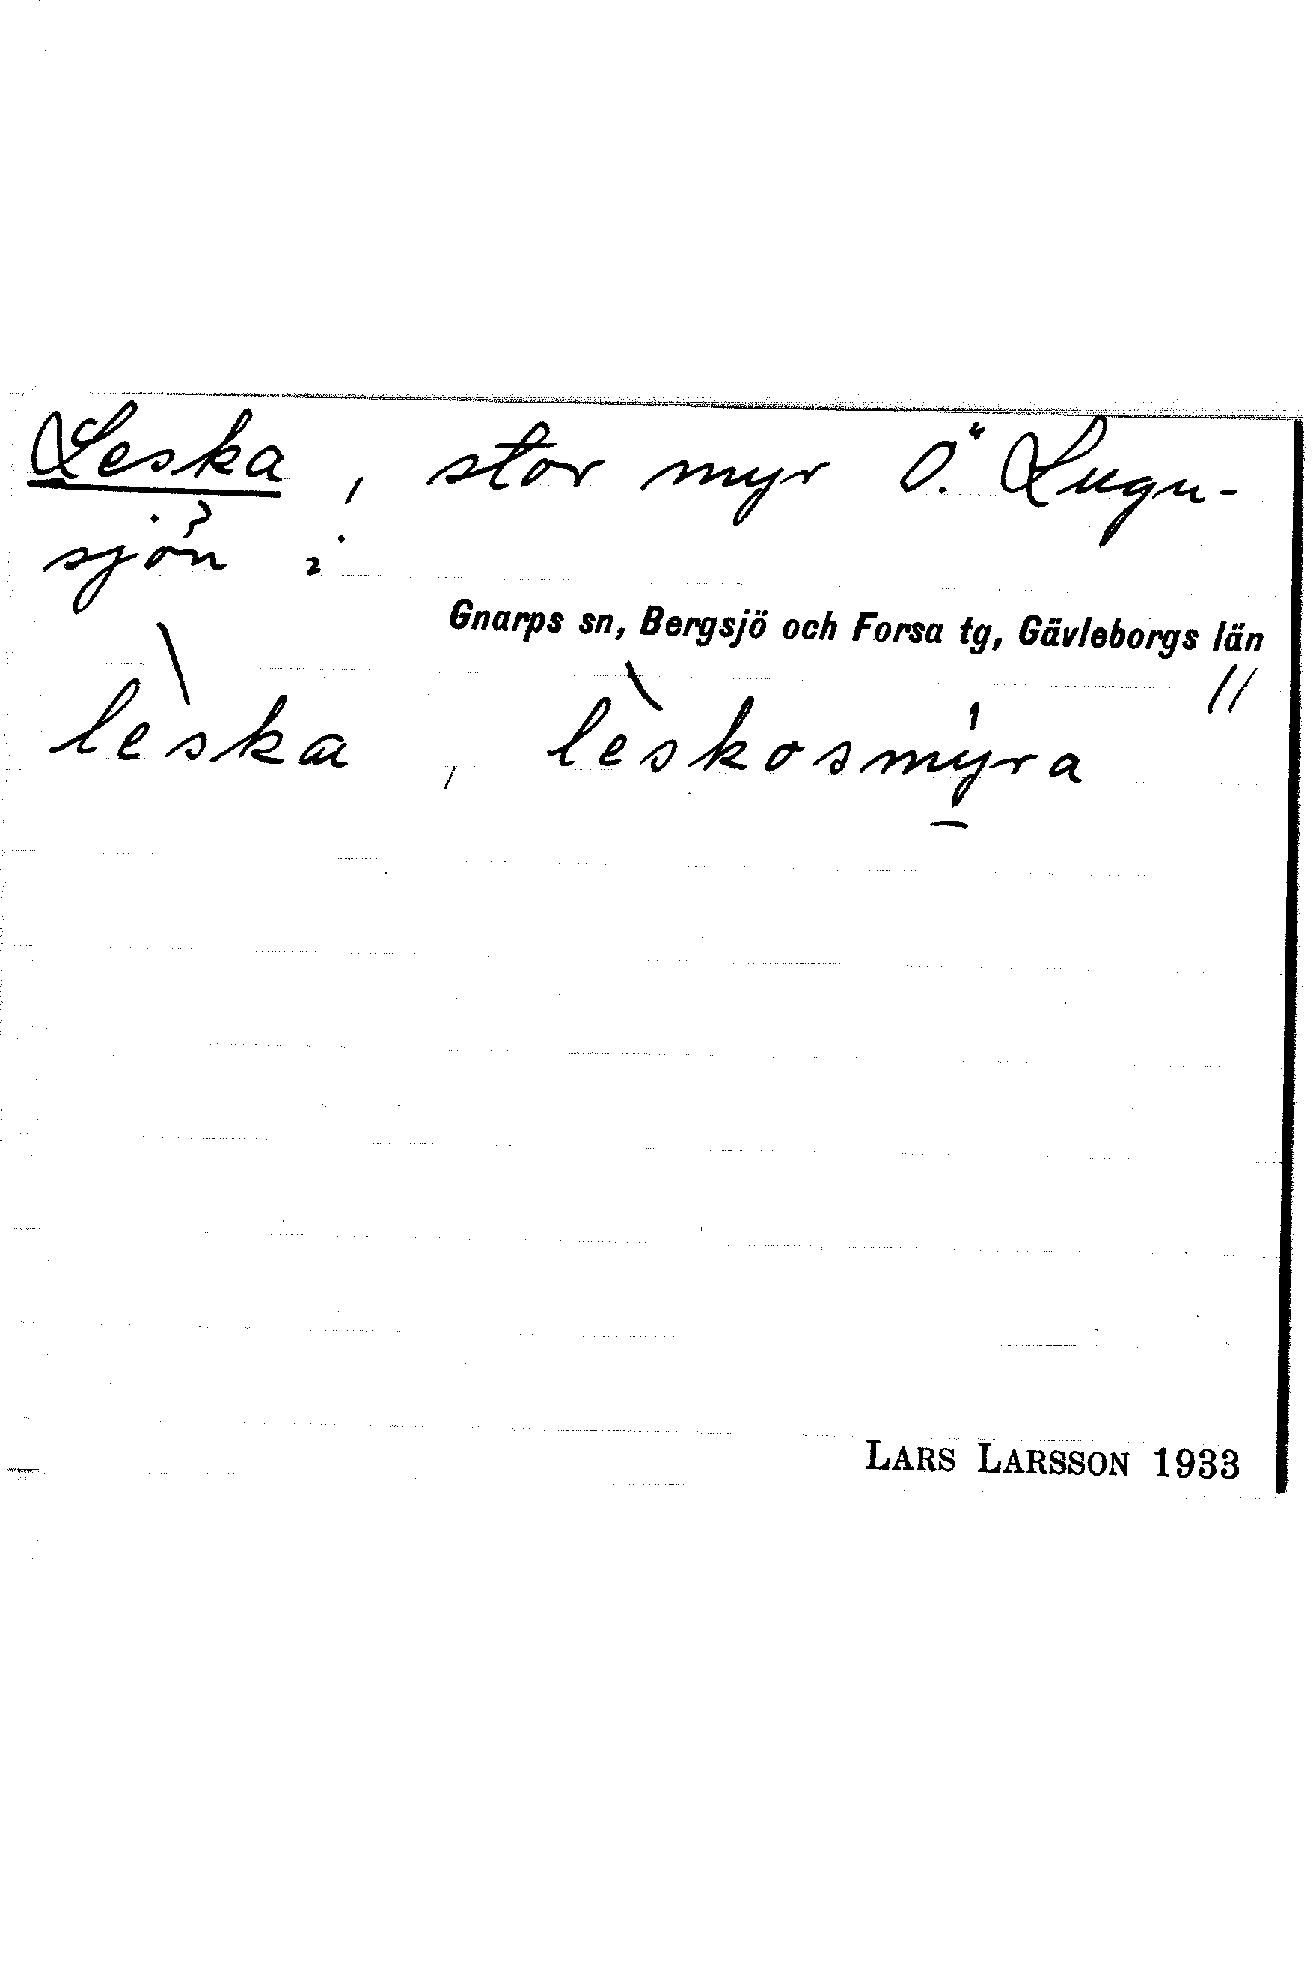 Leska, stor myr Ö. Lugn-
sjön i
Gnarps sn, Bergsjö och Forsa tg, Gävleborgs län
lèska, lèskosmýra
LARS LARSSON 1933